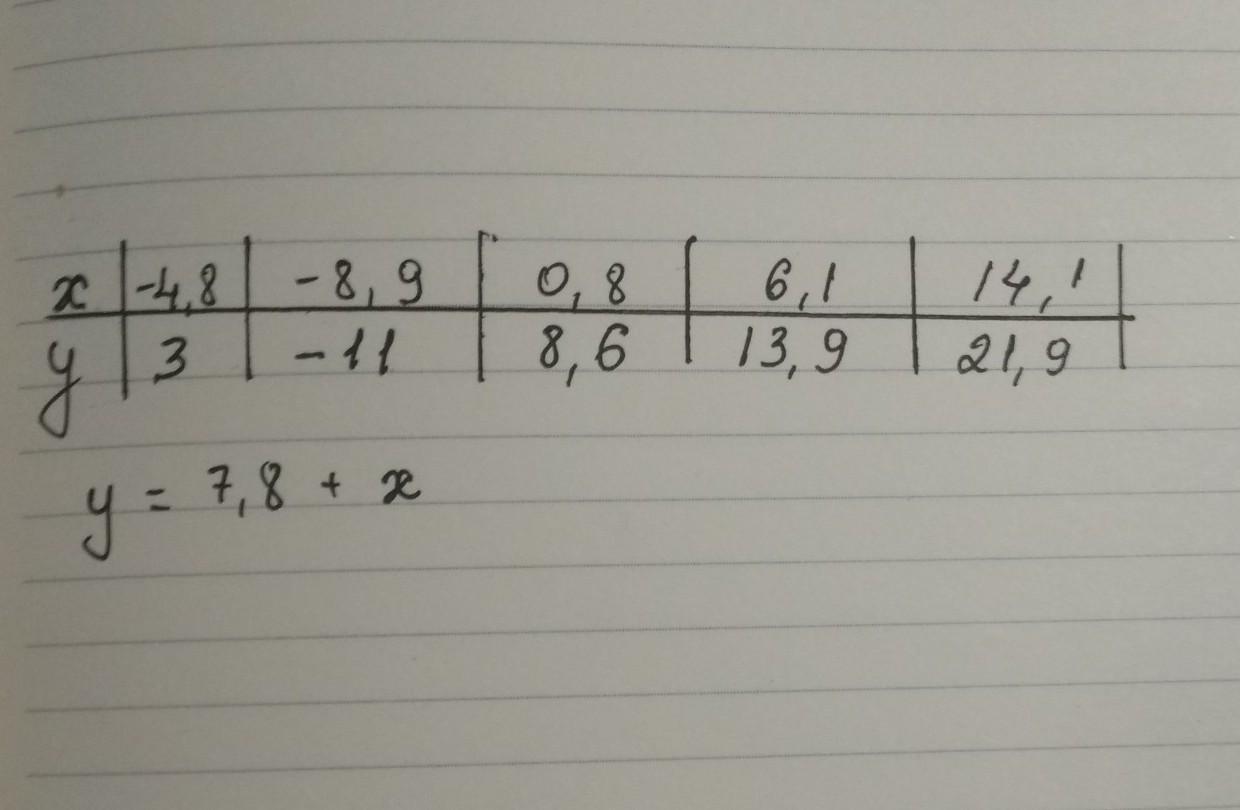 x | -4,8 | -8,9 | 0,8 | 6,1 | 14,1 |
y | 3 | -11 | 8,6 | 13,9 | 21,9 |
y = 7,8 + x